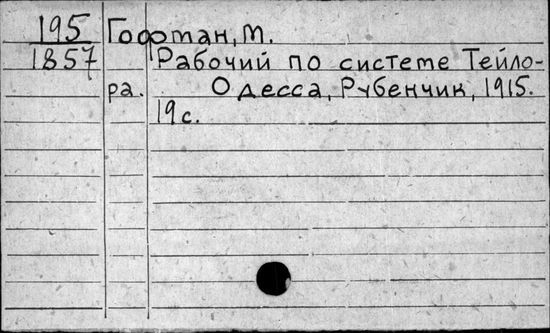 195 Гофман, М.
1857 Рабочий по системе Тейло-
ра. Одесса, Рубенчик, 1915.
19 с.